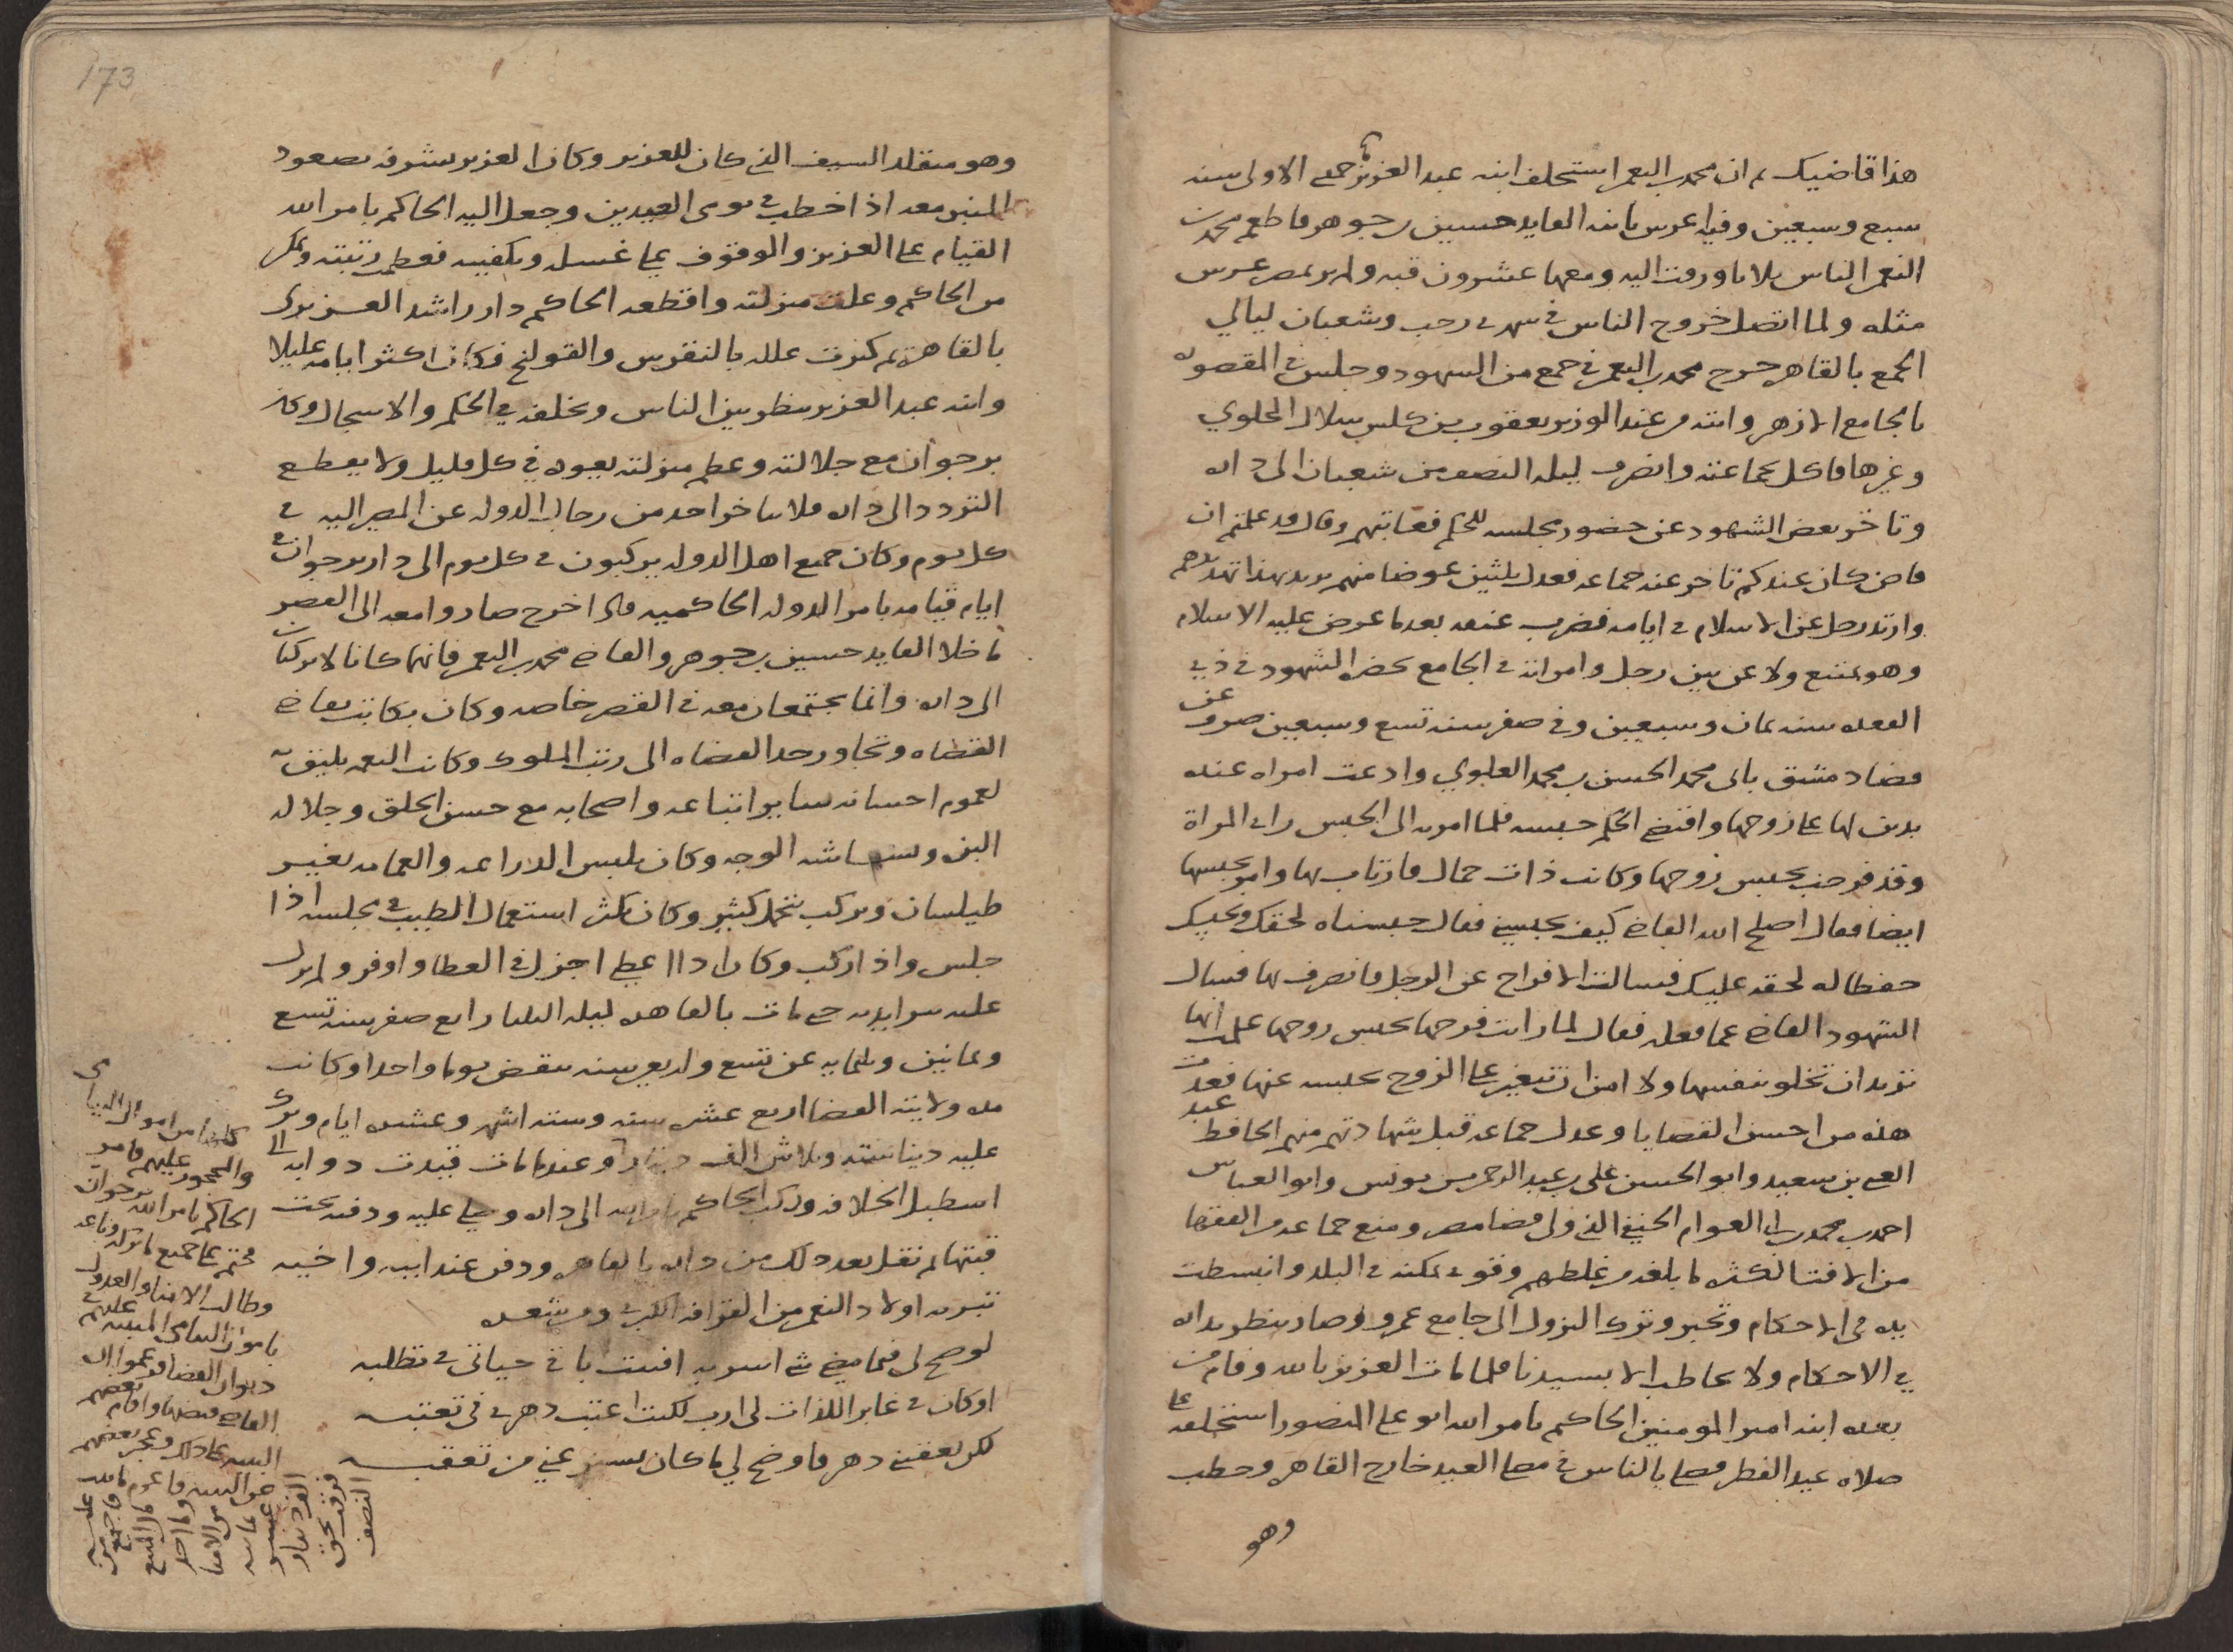 هذا قاضيك ثم ان محمد بن النعمن استخلف ابنه عبد العزيز في جمعى الاولى سنه
سبع وسبعين وفيها عرس بابنه القايد حسين بن جوهر فاطعم محمد بن
النعمن الناس ثلاثا وزفت اليه ومعها عشرون قبه ولم ير بمصر عرس
مثله ولما اتصل خروج الناس في شهرى رجب وشعبان ليالي
الجمع بالقاهره خرج محمد بن النعمن في جمع من الشهود وجلس في المقصوره
بالجامع الازهر واتته من عند الوزير يعقوب بن كلس سلال الحلوي
وغيرها فاكل جماعته وانصرف ليله النصف من شعبان الى داره
وتاخر بعض الشهود عن حضور مجلسه للحكم فعاتبهم وقال قد علمتم ان
قاض كان عندكم تاخر عنه جماعه فعدل ثلثين عوضا منهم يريد بهذا تهديدهم
وارتد رجل عن الاسلام في ايامه فضرب عنقه بعد ما عرض عليه الاسلام
وهو يمتنع ولاعن بين رجل وامراته في الجامع بحضره الشهود في ذي
القعده سنه ثمان وسبعين وفي صفر سنه تسع وسبعين صرف عن
قضا دمشق بابى محمد الحسن بن محمد العلوي وادعت امراه عنده
بدين لها على زوجها واقتضى الحكم حبسه فلما امر به الى الحبس راى المراة
وقد فرحت بحبس زوجها وكانت ذات جمال فارتاب بها وامر بحبسها
ايضا فقالت اصلح الله القاضي كيف تحبسني فقال حبسناه لحقك ونحبسك
حفظا له لحقه عليك فسالت الافراج عن الرجل فانصرف بها فسال
الشهود القاضي عما فعله فقال لما رايت فرحها بحبس زوجها علمت انها
تريد ان تخلو بنفسها ولا امن ان تتغير على الزوج بحبسه عنها فعدت
هذه من احسن القضايا وعدل جماعه قبل شهادتهم منهم الحافظ عبد
الغني بن سعيد وابو الحسن علي بن عبد الرحمن بن يونس وابو العباس
احمد بن محمد بن ابي العوام الحنفي الذي ولي قضا مصر ومنع جماعه من الفقها
من الافتا لكثره ما بلغه من غلطهم وقوى تمكنه في البلد وانبسطت
يده في الاحكام وتحير وترك النزول الى جامع عمرو وصار ينظر بداره
في الاحكام ولا يخاطب الا بسيدنا فلما مات العزيز بالله وقام من
بعده ابنه امير المومنين الحاكم بامر الله ابو على المنصور استخلفه على
صلاه عيد الفطر فصلى بالناس في مصلى العيد خارج القاهره وخطب
وهو
173
وهو متقلد السيف الذي كان للعزيز وكان العزيز يشرفه بصعود
المنبر معه اذا خطب في يومى العيدين وجعل اليه الحاكم بامر الله
القيام على العزيز والوقوف على غسله وتكفينه فعظمت رتبته وتمكن
من الحاكم وعلت منزلته واقطعه الحاكم دار راشد العزيزي
بالقاهرة ثم كثرت علله بالنقرس والقولنج فكان اكثر ايامه عليلا
وابنه عبد العزيز ينظر بين الناس ويخلفه في الحكم والاسجال وكان
برجوان مع جلالته وعظم منزلته يعوده في كل قليل ولا يقطع
التردد الى داره فلا يتاخر احد من رجال الدوله عن المصير اليه في
كل يوم وكان جميع اهل الدوله يركبون في كل يوم الى دار برجوان في
ايام قيامه بامر الدوله الحاكميه فاذا خرج صاروا معه الى القصر
ما خلا القايد حسين بن جوهر والقاضي محمد بن النعمن فانهما كانا لا يركبان
الى داره وانما يجتمعان معه في القصر خاصه وكان يكاتب بقاضي
القضاه وتجاوز حد القضاه الى رتب الملوك وكانت النعمه تليق به
لعموم احسانه ساير اتباعه واصحابه مع حسن الخلق وجلاله
البزه وبشاشه الوجه وكان يلبس الدراعه والعمامه بغير
طيلسان ويركب بتجمل كثير وكان يكثر استعمال الطيب في مجلسه اذا
جلس واذا ركب وكان اذا اعطى اجزل في العطا واوفر ولم يزل
عليه حتى مات بالقاهره ليله الثلثا رابع صفر سنه تسع
وثمانين وثلثمايه عن تسع واربعين سنه تنقص يوما واحدا وكانت
مده ولايته القضا اربع عشره سنه وسته اشهر وعشره ايام وترك
عليه دينا سته وثلاثين الف دينار وعندما مات قيدت دوابه الى
اسطبل الخلافه وركب الحاكم بامر الله الى داره وصلى عليه ودفنه تحت
قبتها ثم نقل بعد ذلك من داره بالقاهره ودفن عند ابيه واخيه
بتربه اولاد النعمن من القرافه الكبرى ومن شعره
لو صح لى فيما مضى شى اسر به افنيت باقي حياتى في تطلبه
او كان في غابر اللذات لى ارب لكنت اعتب دهرى في تعتبه
لكن تعقبني دهر فاوضح لي ما كان يستر عني من تعقبه
كلها من اموال اليتامى
والمحجور عليهم فامر
الحاكم بامر الله برجوان
فختم على جميع ما تركه وباعه
وطالب الامنا والعدول
باموال اليتامى المثبته عليهم في
ديوان القضا فزعموا ان
القاضي قبضها واقام بعضهم
البينه على ذلك وعجز بعضهم
عن البينه فاغرم ما ثبت
عليه
فاجتمع من
مال المبيع
وما اخذ
من الامنا
ثمانيه
عشر
الف دينار
ففرقت بحق
النصف